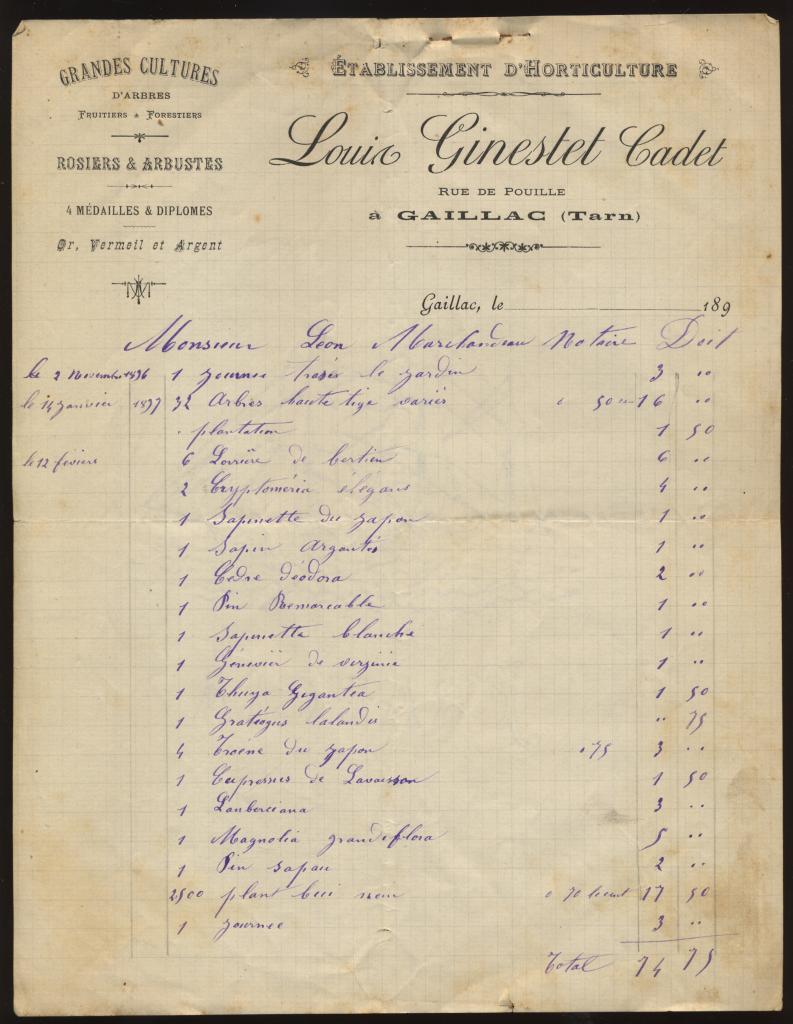 GRANDES CULTURES
D'ARBRES
FRUITIERS & FORESTIERS
ROSIERS & ARBUSTES
4 MÉDAILLES & DIPLOMES
Or, Vermeil et Argent
ÉTABLISSEMENT D'HORTICULTURE
Louis Ginestet Cadet
RUE DE POUILLE
à GAILLAC (Tarn)
Gaillac, le 189
Monsieur Léon Marchandeau Notaire Doit
le 2 Novembre 1896 1 journee trasés le jardin 3 ..
le 14 janvier 1897 32 Arbres haute tige variés a 50 16 ..
. plantation 1 50
le 12 feviere 6 de 6 ..
2 Cryptoméria élégans 4 ..
1 Sapinette du japon 1 ..
1 Sapin Argantés 1 ..
1 Cèdre déodora 2 ..
1 Pin Remarcable 1 ..
1 Sapinette blanche 1 ..
1 Génevier de virginie 1 ..
1 Thuya Gigantea 1 50
1 Gratéogus lalandis .. 75
4 Troène du japon a 75 3 ..
1 Cupressus de Lavaisson 1 50
1 Lanberciana 3 ..
1 Magnolia grandiflora 5 ..
1 Pin sapau 2 ..
2500 plant bui nain a 70 le cent 17 50
1 journee 3 ..
Total 74 75